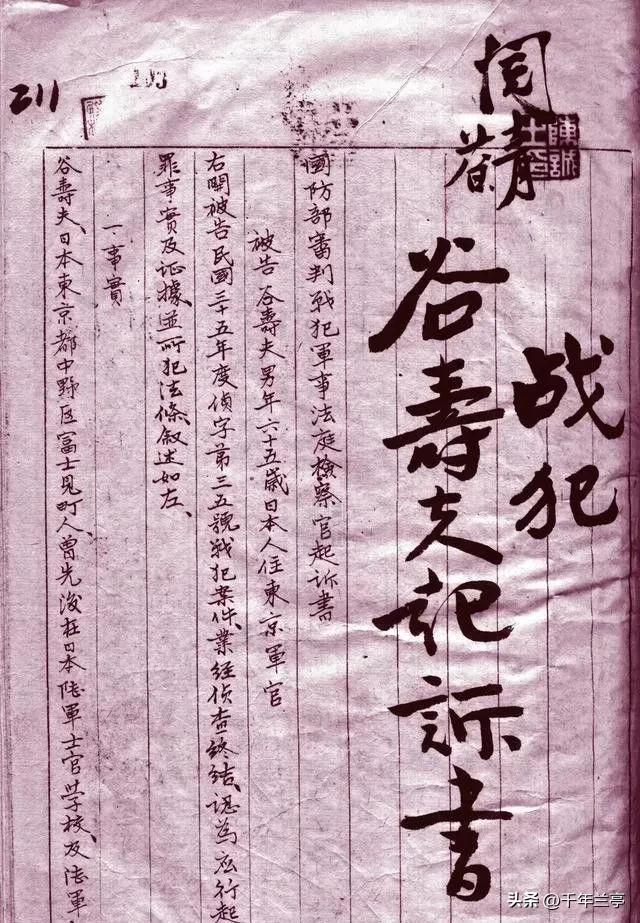 閱
战犯
谷壽夫起訴書
陳誠
國防部審判戰犯軍事法庭檢察官起訴書
被告谷壽夫男年六十五歲日本人住東京軍官
右開被告民國三十五年度偵字第三五號戰犯案件、業經偵查終結、認為应行起
罪事實及证據並所犯法條叙述如左、
一事實
谷壽夫、日本東京都中野区富士見町人、曾先後在日本陸軍士官学校、及陸軍
193
211
头条 @千年兰亭